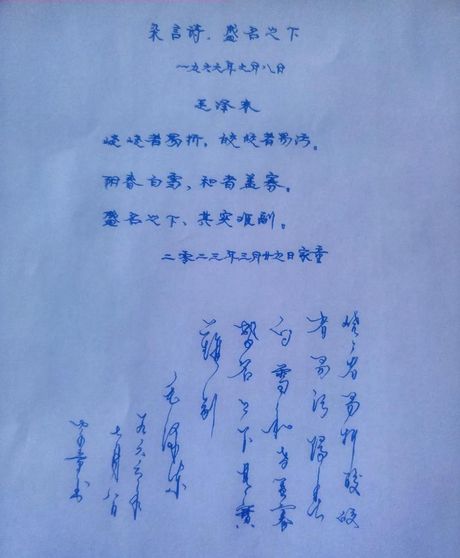 杂言詩、盛名之下
一九六六年七月八日
毛泽东
峣峣者易折，皎皎者易污。
阳春白雪，和者盖寡。
盛名之下、其实难副。
二零二三年三月廿七日家童
峣々者易折皎皎
者易污陽春
白雪和者蓋寡
盛名之下其實
難副
毛澤东
一九六六年
七月八日